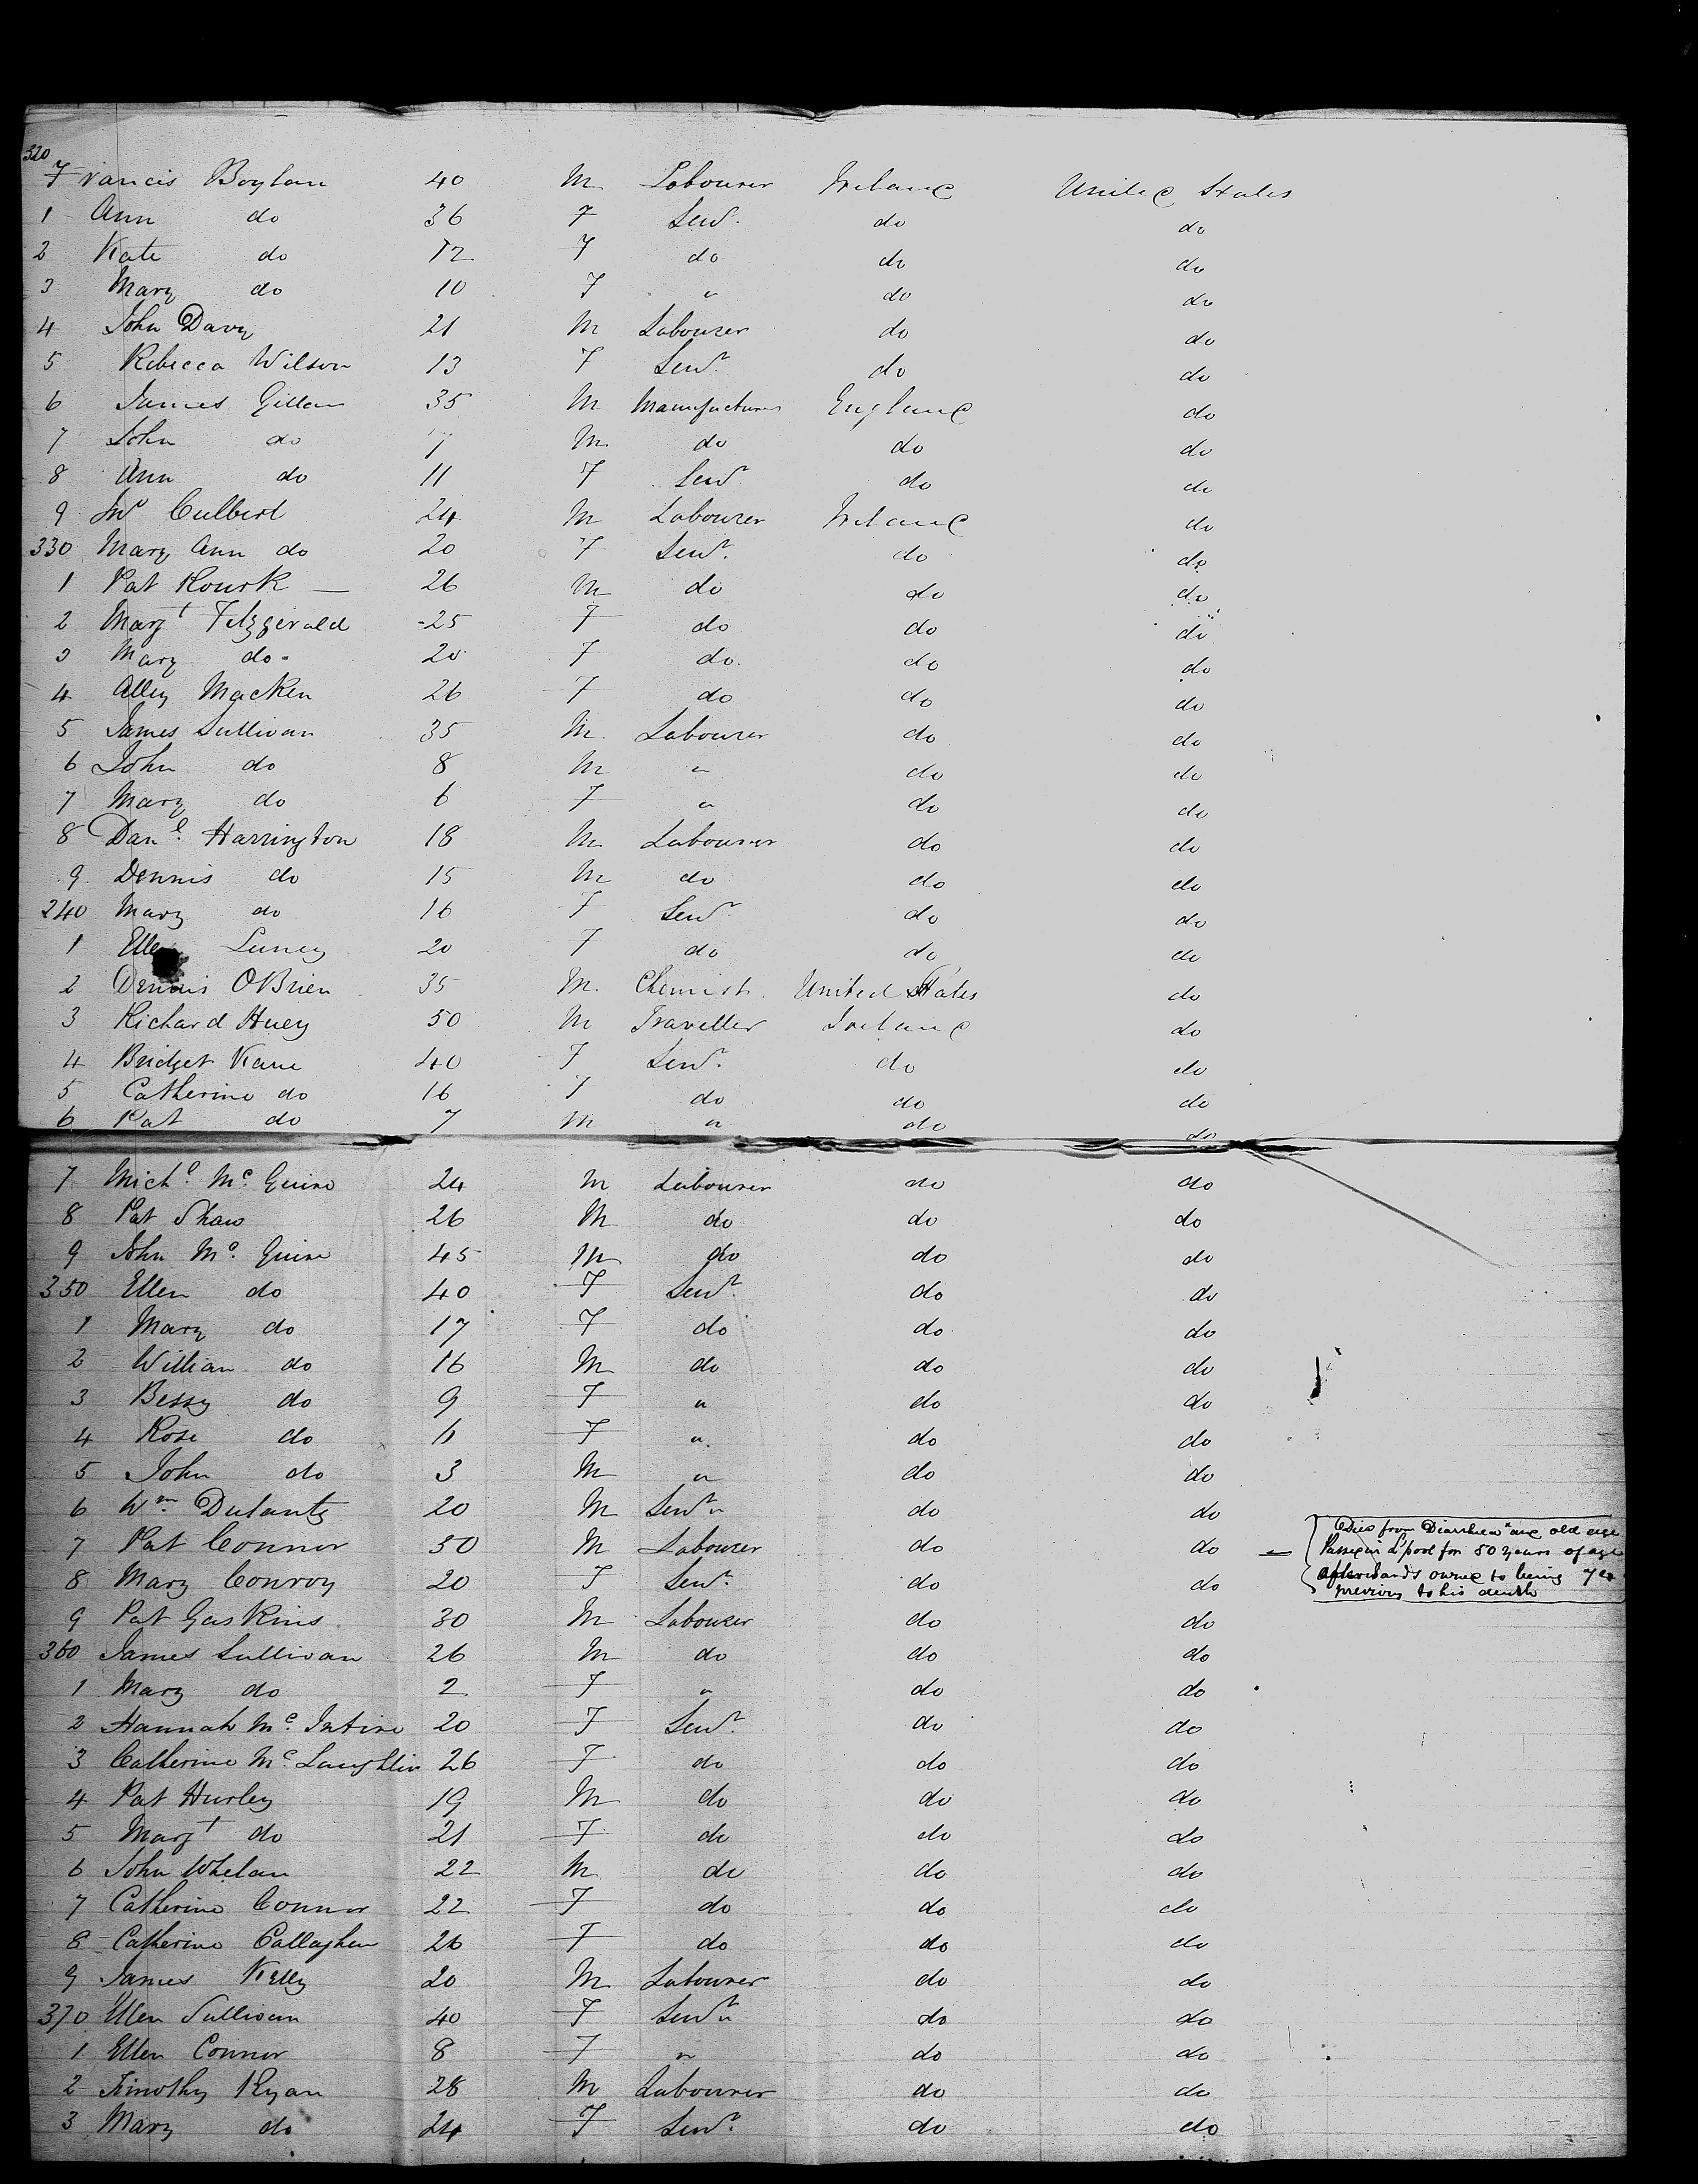 320
Francis Boylan 40 M Labourer Ireland United States
1 Ann do 36 F Servt. do do
2 Kate do 12 F do do do
3 Mary do 10 F " do do
4 John Davy 21 M Labourer do do
5 Rebecca Wilson 13 F Servt. do do
6 James Gillan 35 M Manufacturer England do
7 John do M do do do
8 Ann do 11 F Servt do do
9 Jno Culbert 24 M Labourer Ireland do
330 Mary Ann do 20 F Servt. do do
1 Pat Rourk — 26 M do do do
2 Margt Fitzgerald 25 F do do do
3 Mary do 20 F do. do do
4 Alley Macken 26 F do do do
5 James Sullivan 35 M. Labourer do do
6 John do 8 M " do do
7 Mary do 6 F " do do
8 Danl. Harrington 18 M Labourer do do
9 Dennis do 15 M do do do
240 Mary do 16 F Servt do do
1 Ellen 20 F do do do
2 Dennis OBrien 35 M. Chemist United States do
3 Richard Huey 50 M Traveller Ireland do
4 Bridget Kane 40 F Servt. do do
5 Catherine do 16 F do do do
6 Pat do 7 M " do do
7 Michl. Mc. Guire 24 M Labourer do do
8 Pat Shaw 26 M do do do
9 John Mc. Guire 45 M do do do
350 Ellen do 40 F Servt. do do
1 Mary do 17 F do do do
2 William do 16 M do do do
3 Bessy do 9 F " do do
4 Rose do F " do do
5 John do 3 M " do do
6 Wm. Dulanty 20 M Servt " do do
7 Pat Connor 50 M Labourer do do — Died from Diarrhea and old age
Passage in L'pool for 50 years of age
afterwards owned to being
previous to his death
8 Mary Conroy 20 F Servt. do do
9 Pat Gaskins 30 M Labourer do do
360 James Sullivan 26 M do do do
1 Mary do 2 F " do do
2 Hannah Mc. Intire 20 F Servt. do do
3 Catherine Mc. Laughlin 26 F do do do
4 Pat Hurley 19 M do do do
5 Margt do 21 F do do do
6 John Whelan 22 M do do do
7 Catherine Connor 22 F do do do
8 Catherine Callaghan 26 F do do do
9 James Kelly 20 M Labourer do do
370 Ellen Sullivan 40 F Servt " do do
1 Ellen Connor 8 F " do do
2 Timothy Ryan 28 M Labourer do do
3 Mary do 24 F Servt. do do